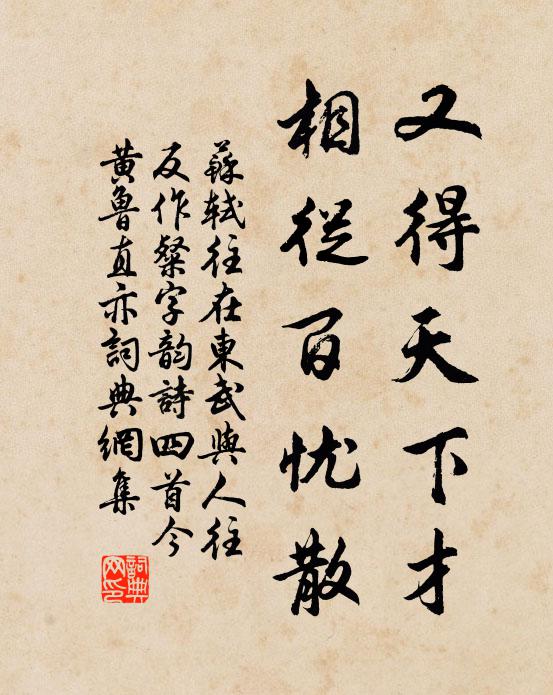 又得天下才
相從百忧散
蘇軾往在東武與人往
反作粲字韵詩四首今
黄魯直亦詞典網集
詞典
网印